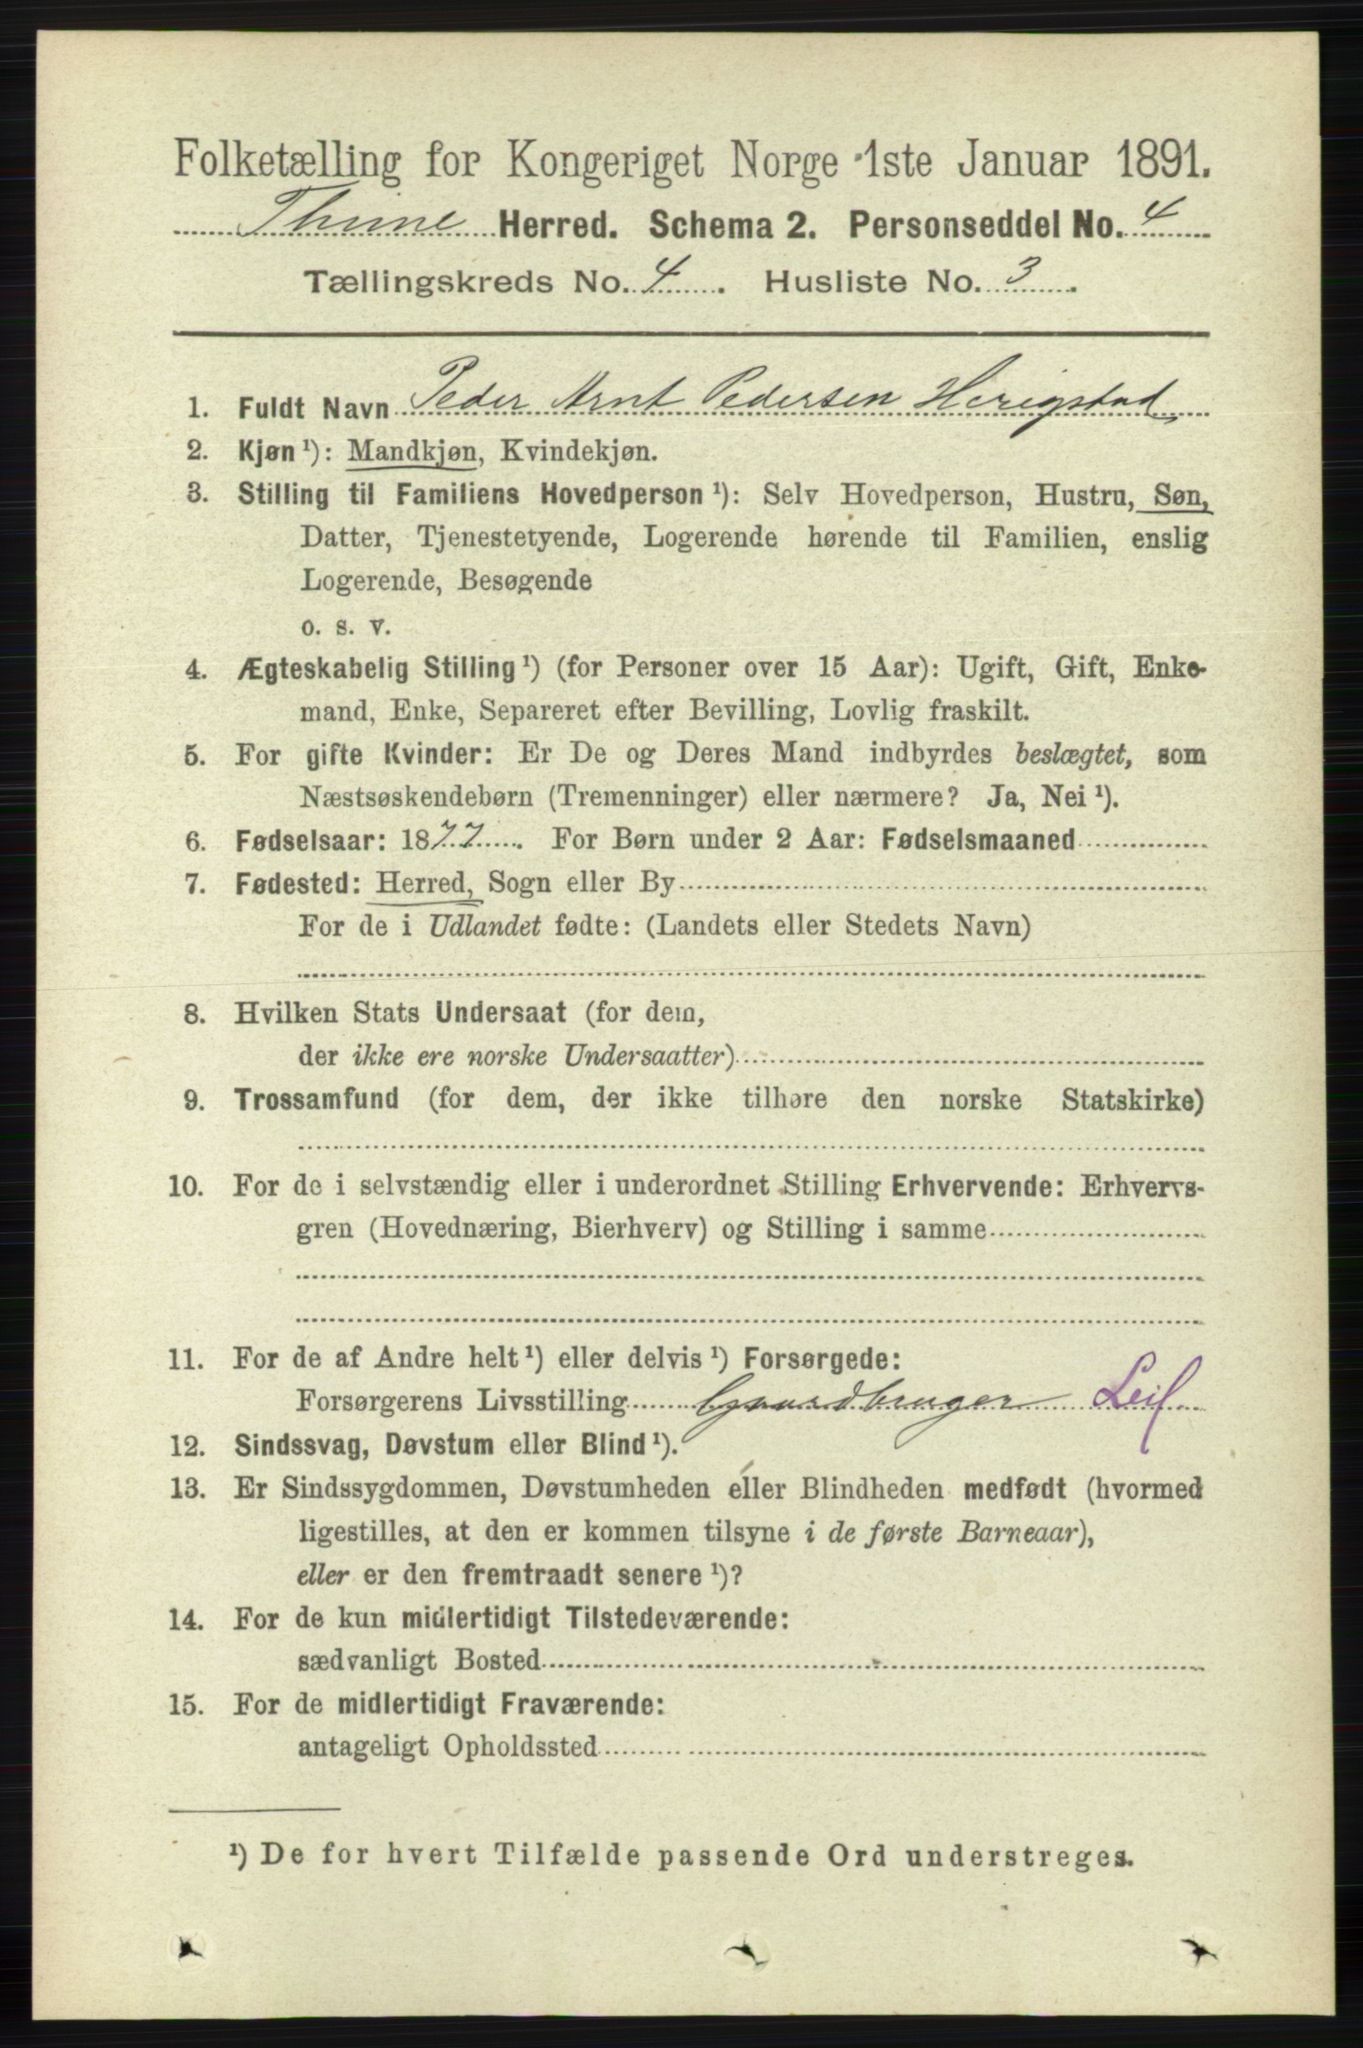 Folketælling for Kongeriget Norge 1ste Januar 1891.
Thime Herred. Schema 2. Personseddel No. 4
Tællingskreds No. 4. Husliste No. 3.
1. Fuldt Navn Peder Arnt Pedersen Herigstad
2. Kjøn ¹): Mandkjøn, Kvindekjøn.
3. Stilling til Familiens Hovedperson ¹): Selv Hovedperson, Hustru, Søn,
Datter, Tjenestetyende, Logerende hørende til Familien, enslig
Logerende, Besøgende
o. s. v.
4. Ægteskabelig Stilling ¹) (for Personer over 15 Aar): Ugift, Gift, Enke-
mand, Enke, Separeret efter Bevilling, Lovlig fraskilt.
5. For gifte Kvinder: Er De og Deres Mand indbyrdes beslægtet, som
Næstsøskendebørn (Tremenninger) eller nærmere? Ja, Nei ¹).
6. Fødselsaar: 1877. For Børn under 2 Aar: Fødselsmaaned
7. Fødested: Herred, Sogn eller By
For de i Udlandet fødte: (Landets eller Stedets Navn)
8. Hvilken Stats Undersaat (for dem,
der ikke ere norske Undersaatter)
9. Trossamfund (for dem, der ikke tilhøre den norske Statskirke)
10. For de i selvstændig eller i underordnet Stilling Erhvervende: Erhvervs-
gren (Hovednæring, Bierhverv) og Stilling i samme
11. For de af Andre helt ¹) eller delvis ¹) Forsørgede:
Forsørgerens Livsstilling Gaardbruger Leil
12. Sindssvag, Døvstum eller Blind ¹).
13. Er Sindssygdommen, Døvstumheden eller Blindheden medfødt (hvormed
ligestilles, at den er kommen tilsyne i de første Barneaar),
eller er den fremtraadt senere ¹)?
14. For de kun midlertidigt Tilstedeværende:
sædvanligt Bosted
15. For de midlertidigt Fraværende:
antageligt Opholdssted
¹) De for hvert Tilfælde passende Ord understreges.